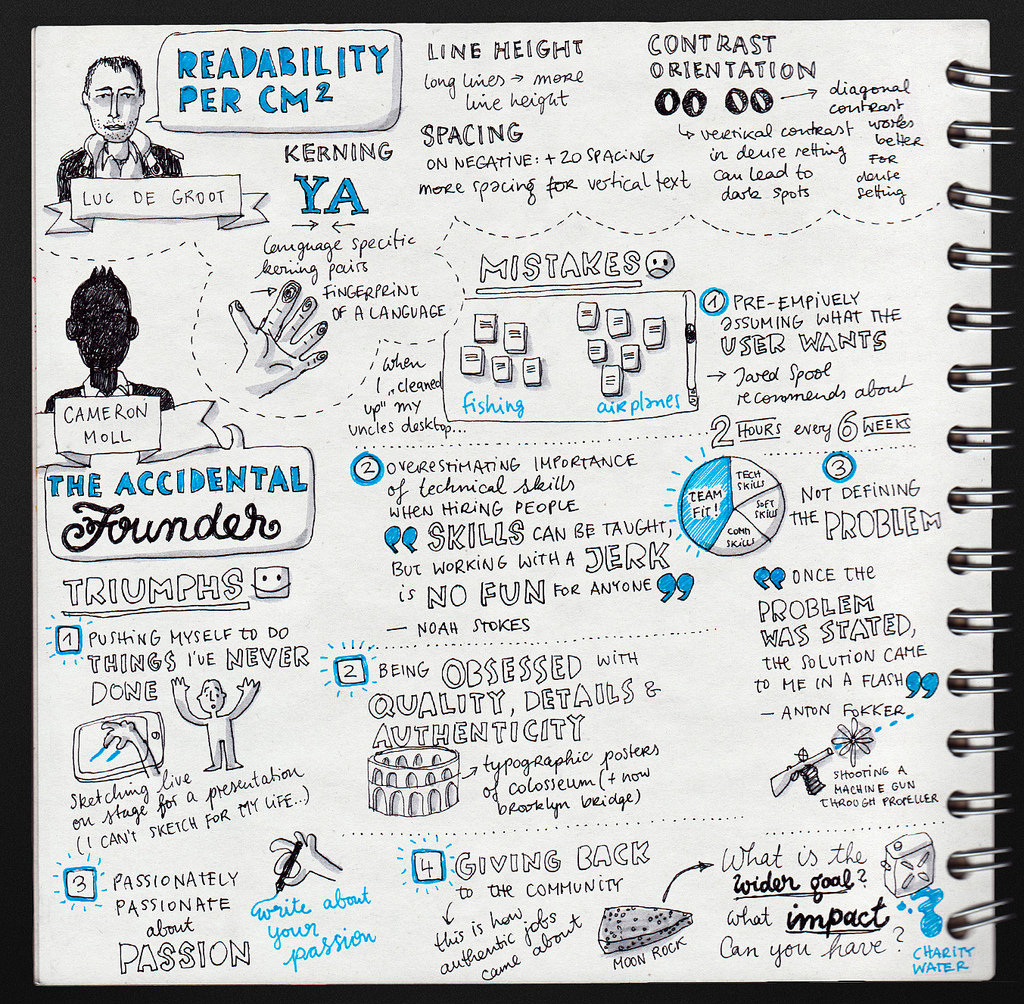 READABILITY
PER CM²
LUC DE GROOT
KERNING
YA
language specific
kerning pairs
→ FINGERPRINT
OF A LANGUAGE
LINE HEIGHT
long lines → more
line height
SPACING
ON NEGATIVE: + 20 SPACING
more spacing for vertical text
CONTRAST
ORIENTATION
OO OO → diagonal
contrast
works
better
FOR
dense
setting
↳ vertikal contrast
in dense setting
can lead to
dark spots
CAMERON
MOLL
THE ACCIDENTAL
Founder
MISTAKES
when
I „cleaned
up" my
uncles desktop...
fishing
airplanes
1 PRE-EMPIVELY
assuming what the
USER WANTS
→ Jared Spool
recommends about
2 HOURS every 6 WEEKS
2 OVERESTIMATING IMPORTANCE
of technical skills
WHEN HIRING PEOPLE
“SKILLS CAN BE TAUGHT,
BUT WORKING WITH A JERK
is NO FUN FOR ANYONE”
— NOAH STOKES
TEAM
FIT!
TECH
SKILLS
SOFT
SKILLS
COMM
SKILLS
3
NOT DEFINING
THE PROBLEM
“ONCE THE
PROBLEM
WAS STATED,
THE SOLUTION CAME
TO ME IN A FLASH”
— ANTON FOKKER
SHOOTING A
MACHINE GUN
THROUGH PROPELLER
TRIUMPHS
1 PUSHING MYSELF TO DO
THINGS I'VE NEVER
DONE
sketching live
on stage for a presentation
(I CAN'T SKETCH FOR MY LIFE..)
2 BEING OBSESSED WITH
QUALITY, DETAILS &
AUTHENTICITY
→ typographic posters
of colosseum (+ now
brooklyn bridge)
3 PASSIONATELY
PASSIONATE
about
PASSION
write about
your
passion
4 GIVING BACK
to the COMMUNITY
this is how
authentic jobs
came about +
MOON ROCK
What is the
wider goal?
what impact
Can you have?
CHARITY
WATER